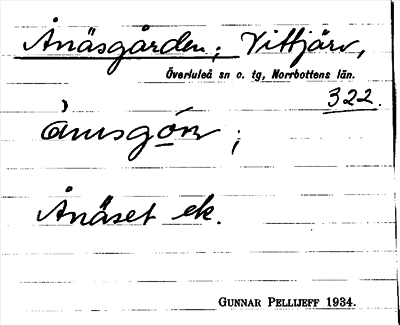 Ånäsgården; Vittjärv,
Överluleå sn o. tg, Norrbottens län.
322.
Ånäset ek.
GUNNAR PELLIJEFF 1934.